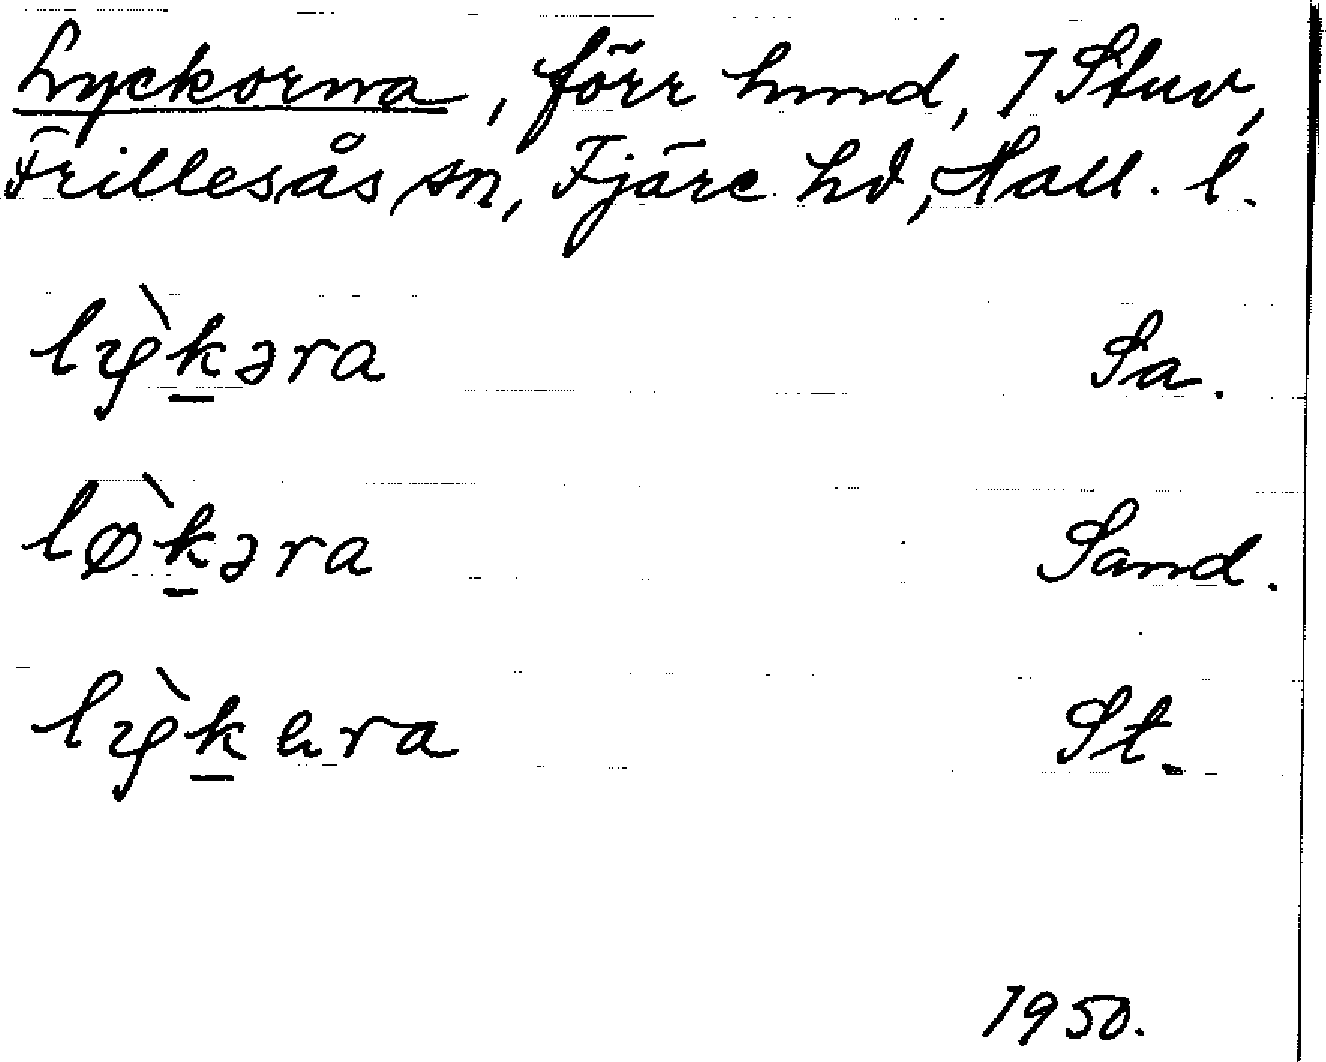 Lyckorna, förr hmd, 7 Stuv,
Frillesås sn, Fjäre hd, Hall. l.
lỳkəra Sa.
lø̀kəra Sand.
lỳkara St.
1950.